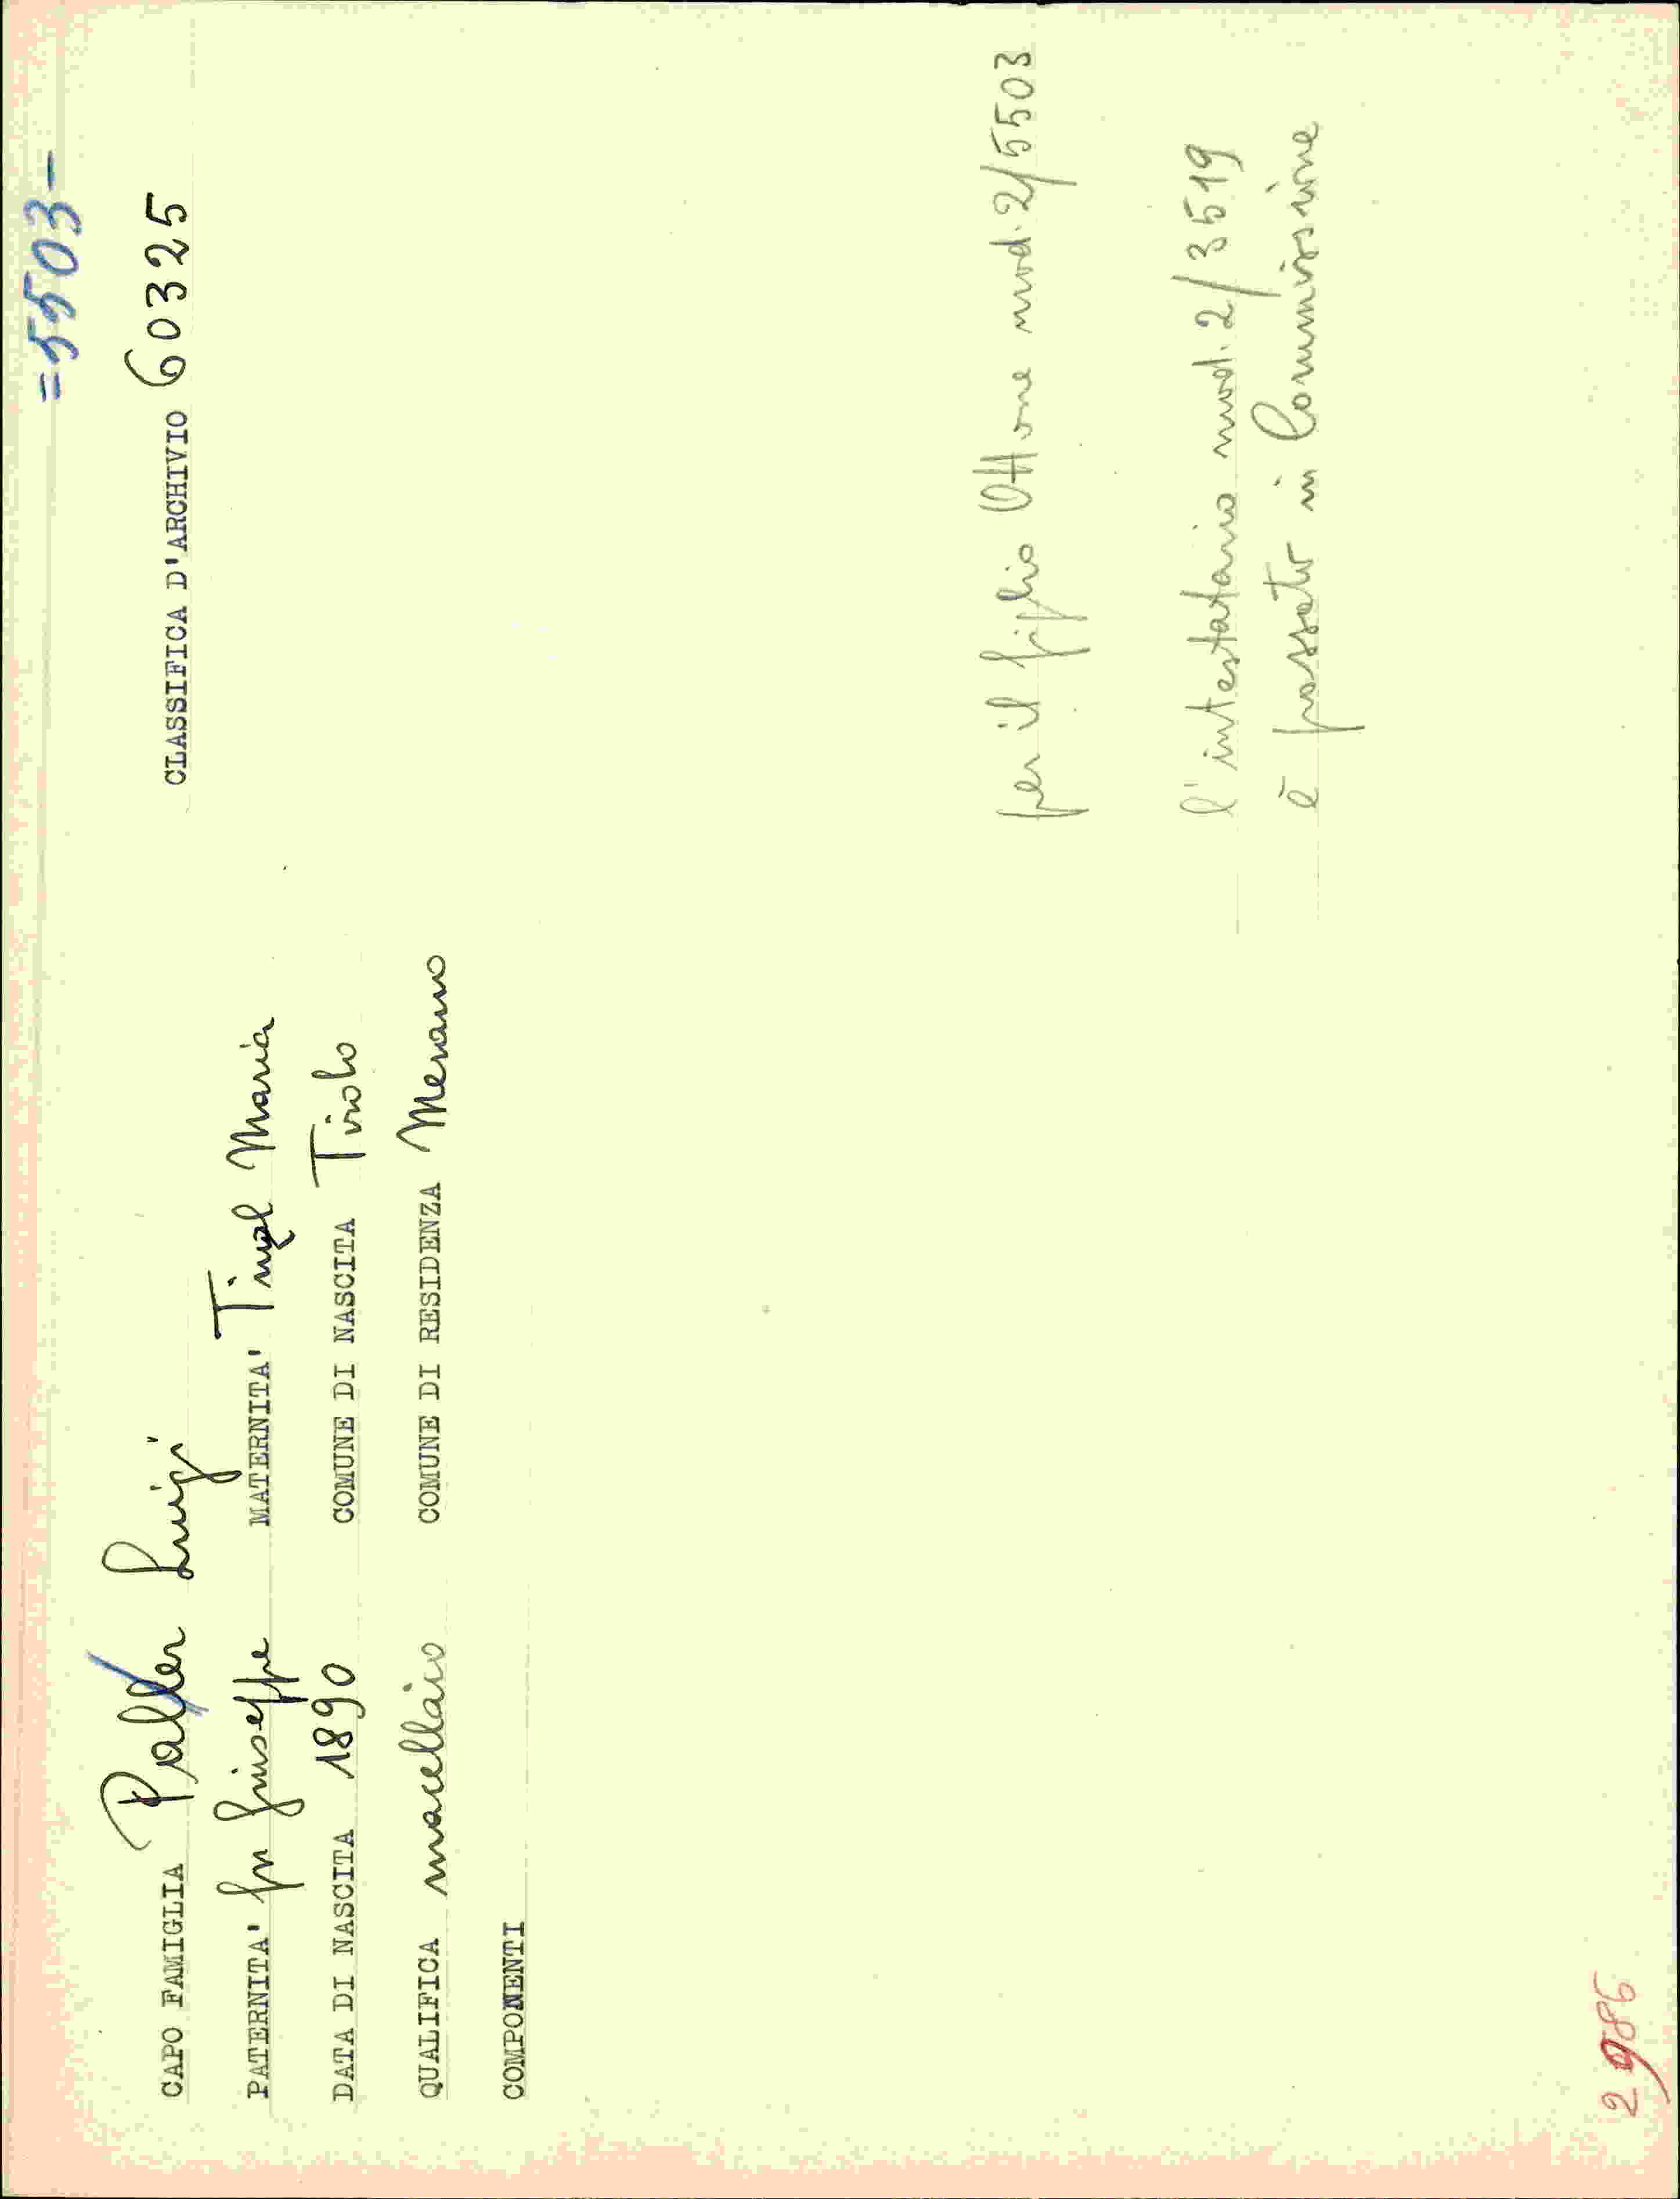 =5503-
CAPO FAMIGLIA Luigi CLASSIFICA D'ARCHIVIO 60325
PATERNITA' fu Giuseppe MATERNITA' Tinzl Maria
DATA DI NASCITA 1890 COMUNE DI NASCITA Tirolo
QUALIFICA macellaio COMUNE DI RESIDENZA Merano
COMPONENTI
per il figlio Ottone mod. 2/5503
l'intestatario mod. 2/3519
è passato in Commissione
2986